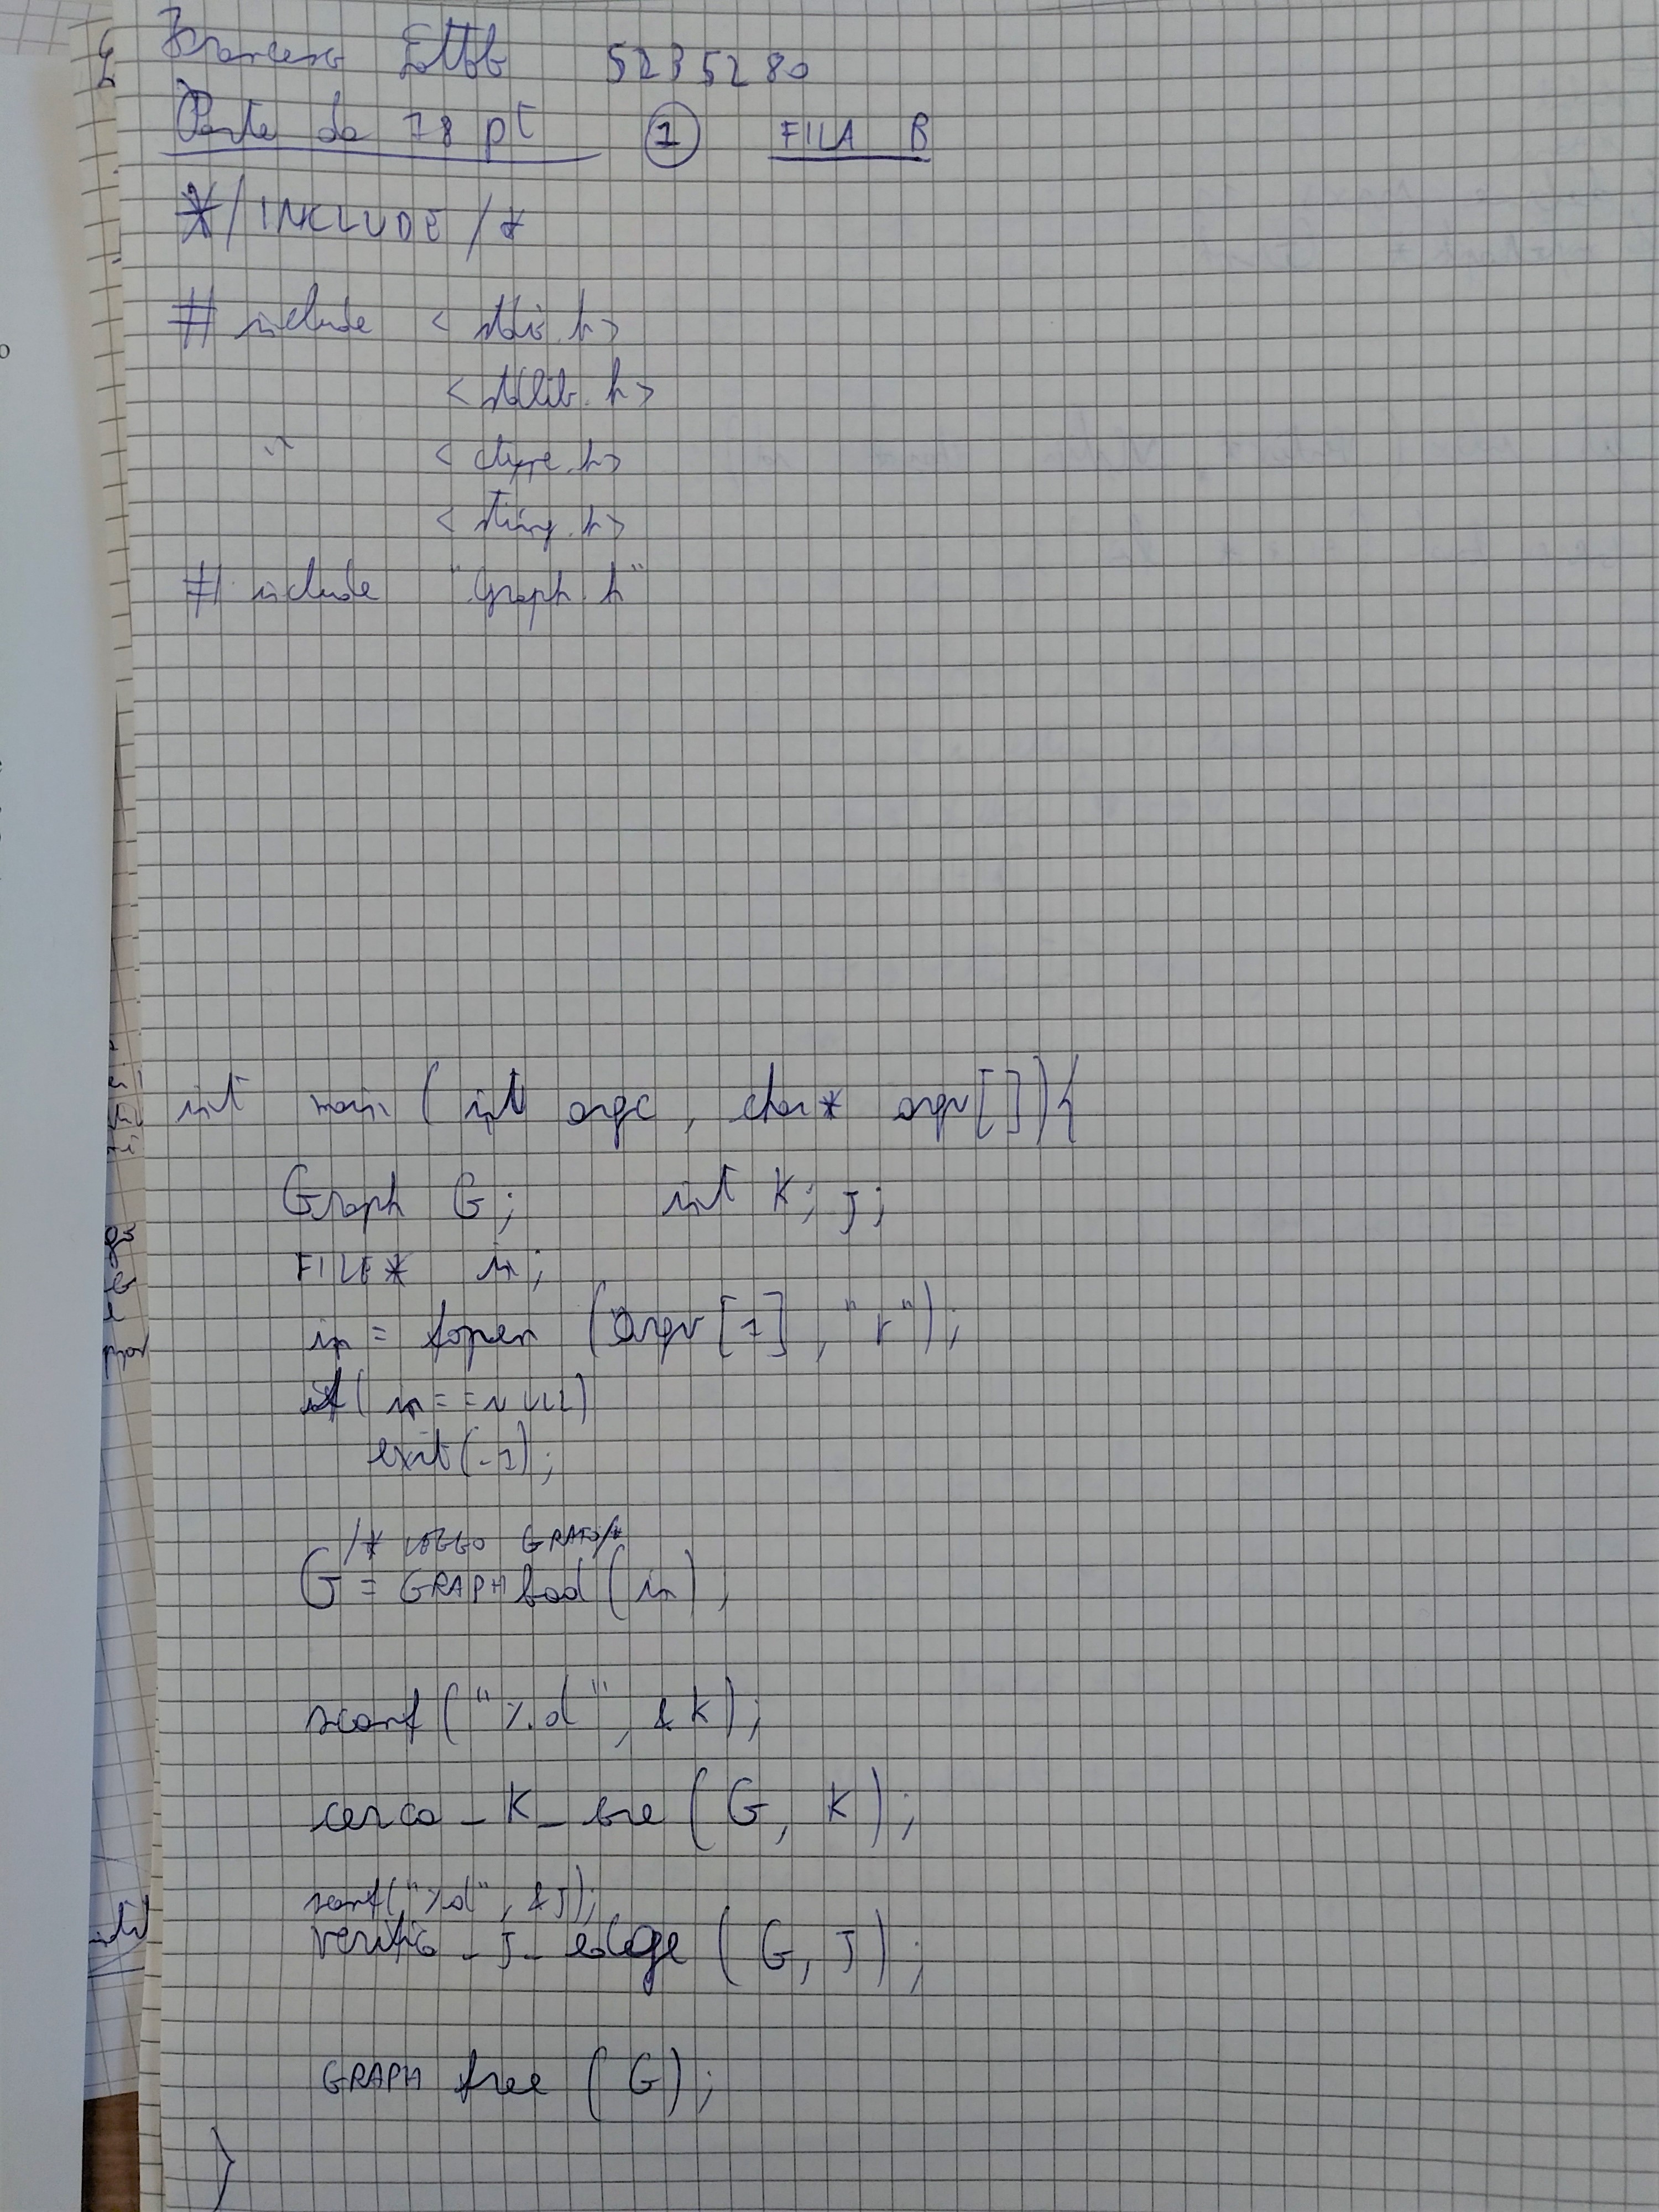 5235280
Parte da 18 pt ① FILA B
*/ INCLUDE /*
# include < stdio.h>
< stdlib.h>
" < ctype.h>
< string.h>
# include "Graph.h"
int main ( int argc , char* argv[]){
Graph G; int K; J;
FILE* in;
in = fopen (argv[1] , "r");
if( in==NULL)
exit(-1);
/* LEGGO GRAFO/*
G = GRAPH load (in);
scanf("%d", &K);
cerca_K_core(G, K);
scanf("%d", &J);
verifica_J_edge (G, J);
GRAPH free (G);
}